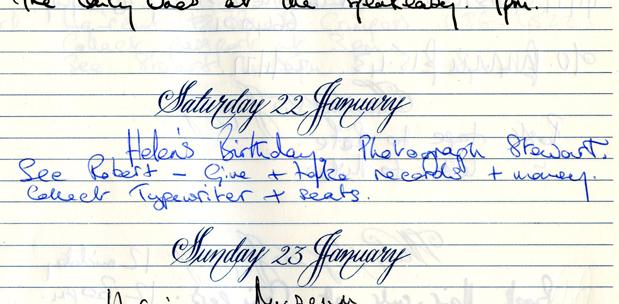 The early ones at the Speakeasy. 1pm.
Saturday 22 January
Helen's Birthday. Photograph Stewart.
See Robert - Give + take records + money.
Collect Typewriter + seats.
Sunday 23 January